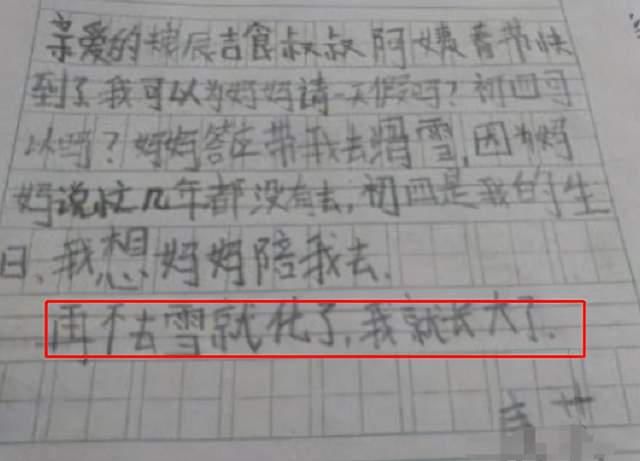 亲爱的粮辰吉食叔叔阿姨春节快
到了我可以为妈妈请一天假吗?初四可
以吗?妈妈答应带我去滑雪,因为妈
妈说忙几年都没有去,初四是我的生
日,我想妈妈陪我去.
再不去雪就化了,我就长大了.